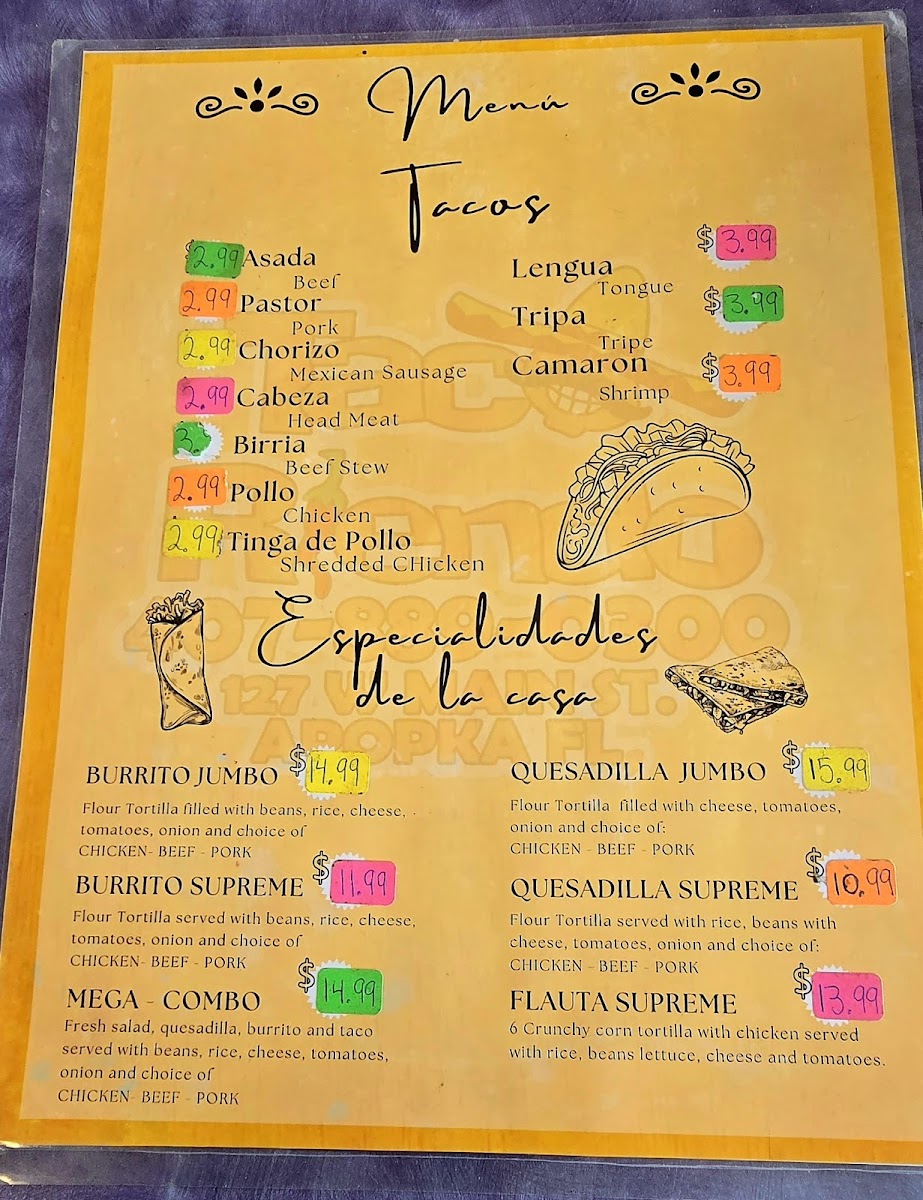 Menú
Tacos
2.99 Asada
Beef
2.99 Pastor
Pork
2.99 Chorizo
Mexican Sausage
2.99 Cabeza
Head Meat
3. Birria
Beef Stew
2.99 Pollo
Chicken
2.99 Tinga de Pollo
Shredded CHicken
Lengua $3.99
Tongue
Tripa $3.99
Tripe
Camaron $3.99
Shrimp
Taco
Riendo
127 W. MAIN ST.
APOPKA FL.
Especialidades
de la casa
BURRITO JUMBO $14.99
Flour Tortilla filled with beans, rice, cheese,
tomatoes, onion and choice of
CHICKEN- BEEF - PORK
BURRITO SUPREME $11.99
Flour Tortilla served with beans, rice, cheese,
tomatoes, onion and choice of
CHICKEN- BEEF - PORK
MEGA - COMBO $14.99
Fresh salad, quesadilla, burrito and taco
served with beans, rice, cheese, tomatoes,
onion and choice of
CHICKEN- BEEF - PORK
QUESADILLA JUMBO $15.99
Flour Tortilla filled with cheese, tomatoes,
onion and choice of:
CHICKEN - BEEF - PORK
QUESADILLA SUPREME $10.99
Flour Tortilla served with rice, beans with
cheese, tomatoes, onion and choice of:
CHICKEN - BEEF - PORK
FLAUTA SUPREME $13.99
6 Crunchy corn tortilla with chicken served
with rice, beans lettuce, cheese and tomatoes.